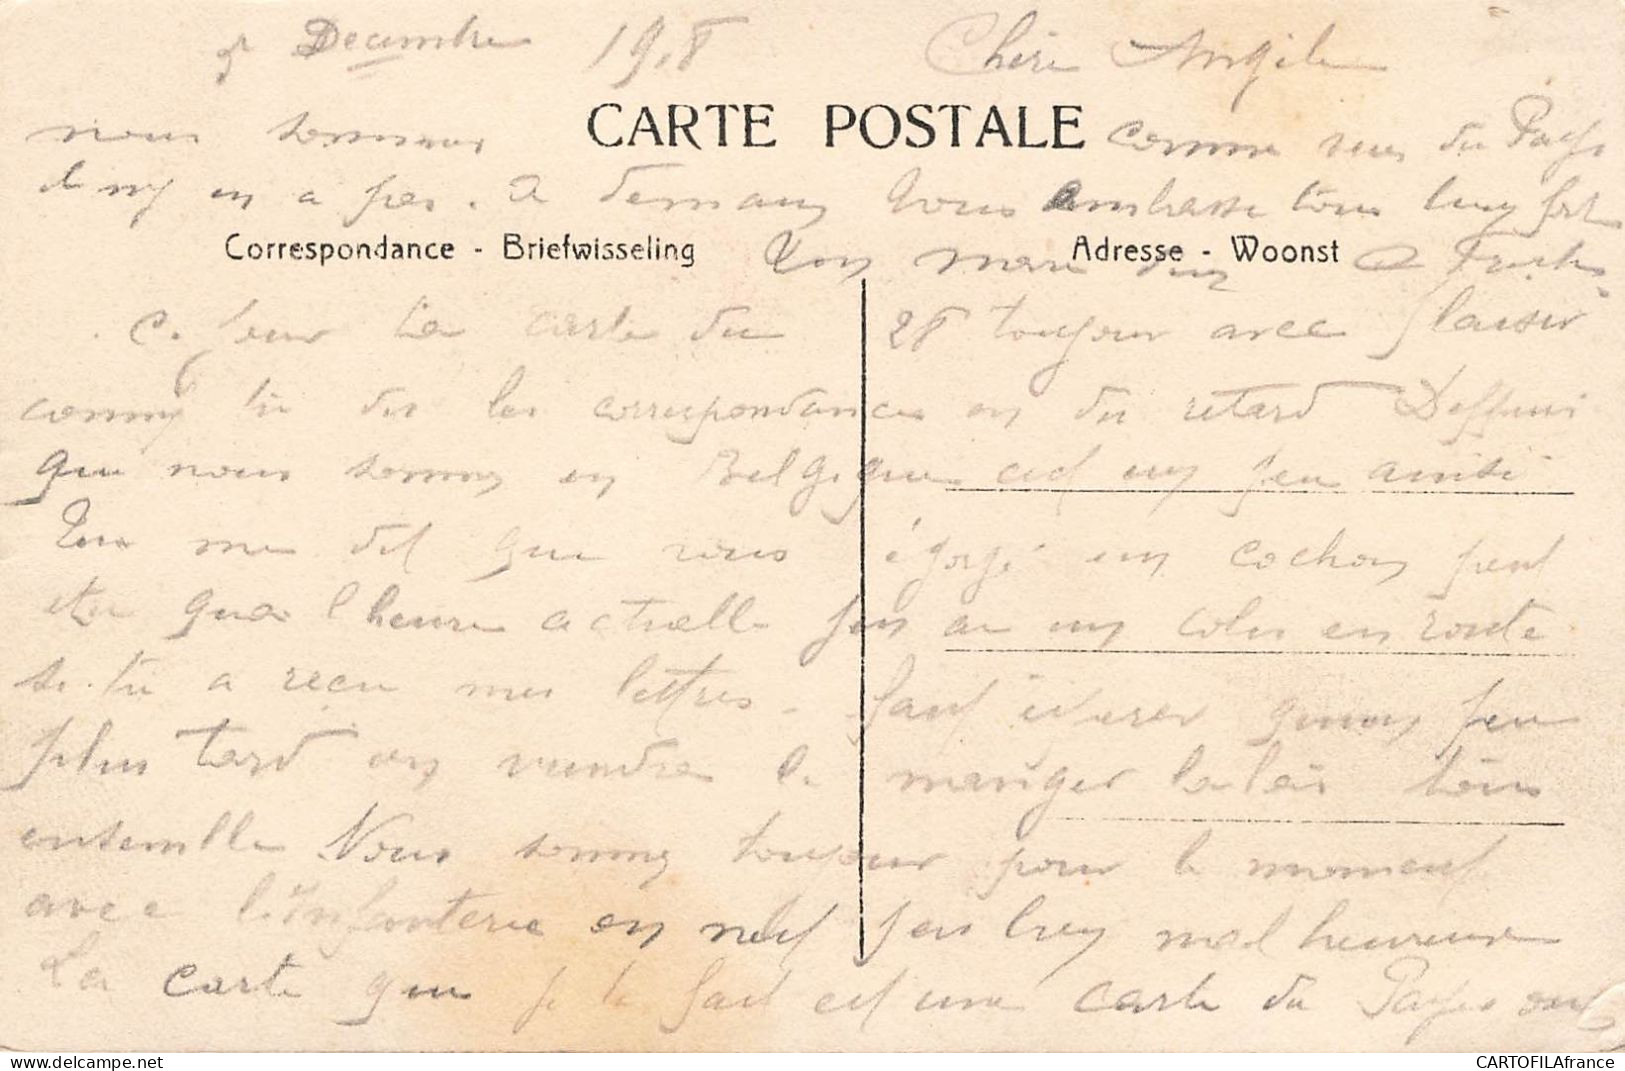 5 Decembre 1918 Chère Angele
CARTE POSTALE
nous sommes comme vues du Pays
il ny en a pas. a demain vous embrasse tous bien fort
Correspondance - Briefwisseling Adresse - Woonst
Ton mari
ta carte du 28 toujour avec plaisir
comme tu dis les correspondances on du retard Deppuis
que nous somme en Belgique cest un peu ainsi
Tu me dit que vous égorgé un cochon peut
etre qua l heure actuelle jen ai un colis en route
si tu a recu mes lettres. faut espérer quun peu
plus tard on viendra le manger la bas tous
ensemble Nous somme toujour pour le moment
avec l'infanterie on nest pas bien malheureux
La carte que je te fait est une carte du Pays ou
CARTOFILAfrance